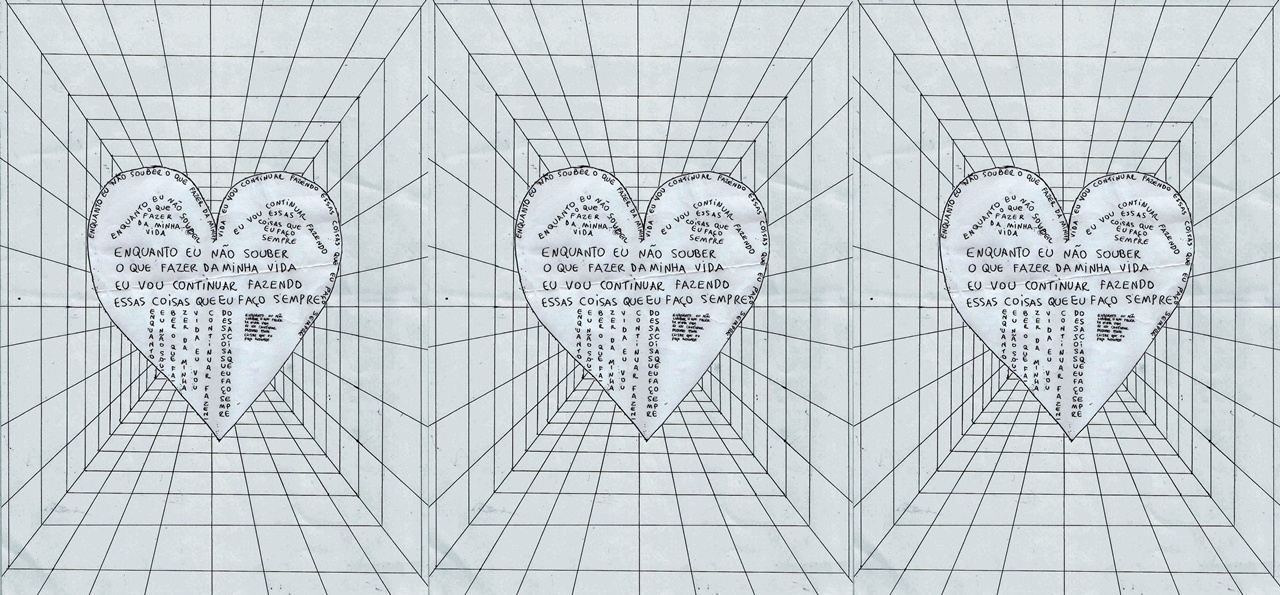 ENQUANTO EU NÃO SOUBER O QUE FAZER DA MINHA VIDA EU VOU CONTINUAR FAZENDO ESSAS COISAS QUE EU FAÇO SEMPRE
ENQUANTO EU NÃO SOUBER
O QUE
FAZER
DA MINHA
VIDA
EU VOU CONTINUAR FAZENDO
ESSAS
COISAS QUE
EU FAÇO
SEMPRE
ENQUANTO EU NÃO SOUBER
O QUE FAZER DA MINHA VIDA
EU VOU CONTINUAR FAZENDO
ESSAS COISAS QUE EU FAÇO SEMPRE
ENQUANTO
EU NÃO SOU
BER O QUE FA
ZER DA MINHA
VIDA EU VOU
CONTINUAR FAZEN
DO ESSAS COISAS QUE EU FAÇO SEMPRE
ENQUANTO EU NÃO SOUBER O QUE FAZER DA MINHA VIDA EU VOU CONTINUAR FAZENDO ESSAS COISAS QUE EU FAÇO SEMPRE
ENQUANTO EU NÃO SOUBER
O QUE
FAZER
DA MINHA
VIDA
EU VOU CONTINUAR FAZENDO
ESSAS
COISAS QUE
EU FAÇO
SEMPRE
ENQUANTO EU NÃO SOUBER
O QUE FAZER DA MINHA VIDA
EU VOU CONTINUAR FAZENDO
ESSAS COISAS QUE EU FAÇO SEMPRE
ENQUANTO
EU NÃO SOU
BER O QUE FA
ZER DA MINHA
VIDA EU VOU
CONTINUAR FAZEN
DO ESSAS COISAS QUE EU FAÇO SEMPRE
ENQUANTO EU NÃO SOUBER O QUE FAZER DA MINHA VIDA EU VOU CONTINUAR FAZENDO ESSAS COISAS QUE EU FAÇO SEMPRE
ENQUANTO EU NÃO SOUBER
O QUE
FAZER
DA MINHA
VIDA
EU VOU CONTINUAR FAZENDO
ESSAS
COISAS QUE
EU FAÇO
SEMPRE
ENQUANTO EU NÃO SOUBER
O QUE FAZER DA MINHA VIDA
EU VOU CONTINUAR FAZENDO
ESSAS COISAS QUE EU FAÇO SEMPRE
ENQUANTO
EU NÃO SOU
BER O QUE FA
ZER DA MINHA
VIDA EU VOU
CONTINUAR FAZEN
DO ESSAS COISAS QUE EU FAÇO SEMPRE